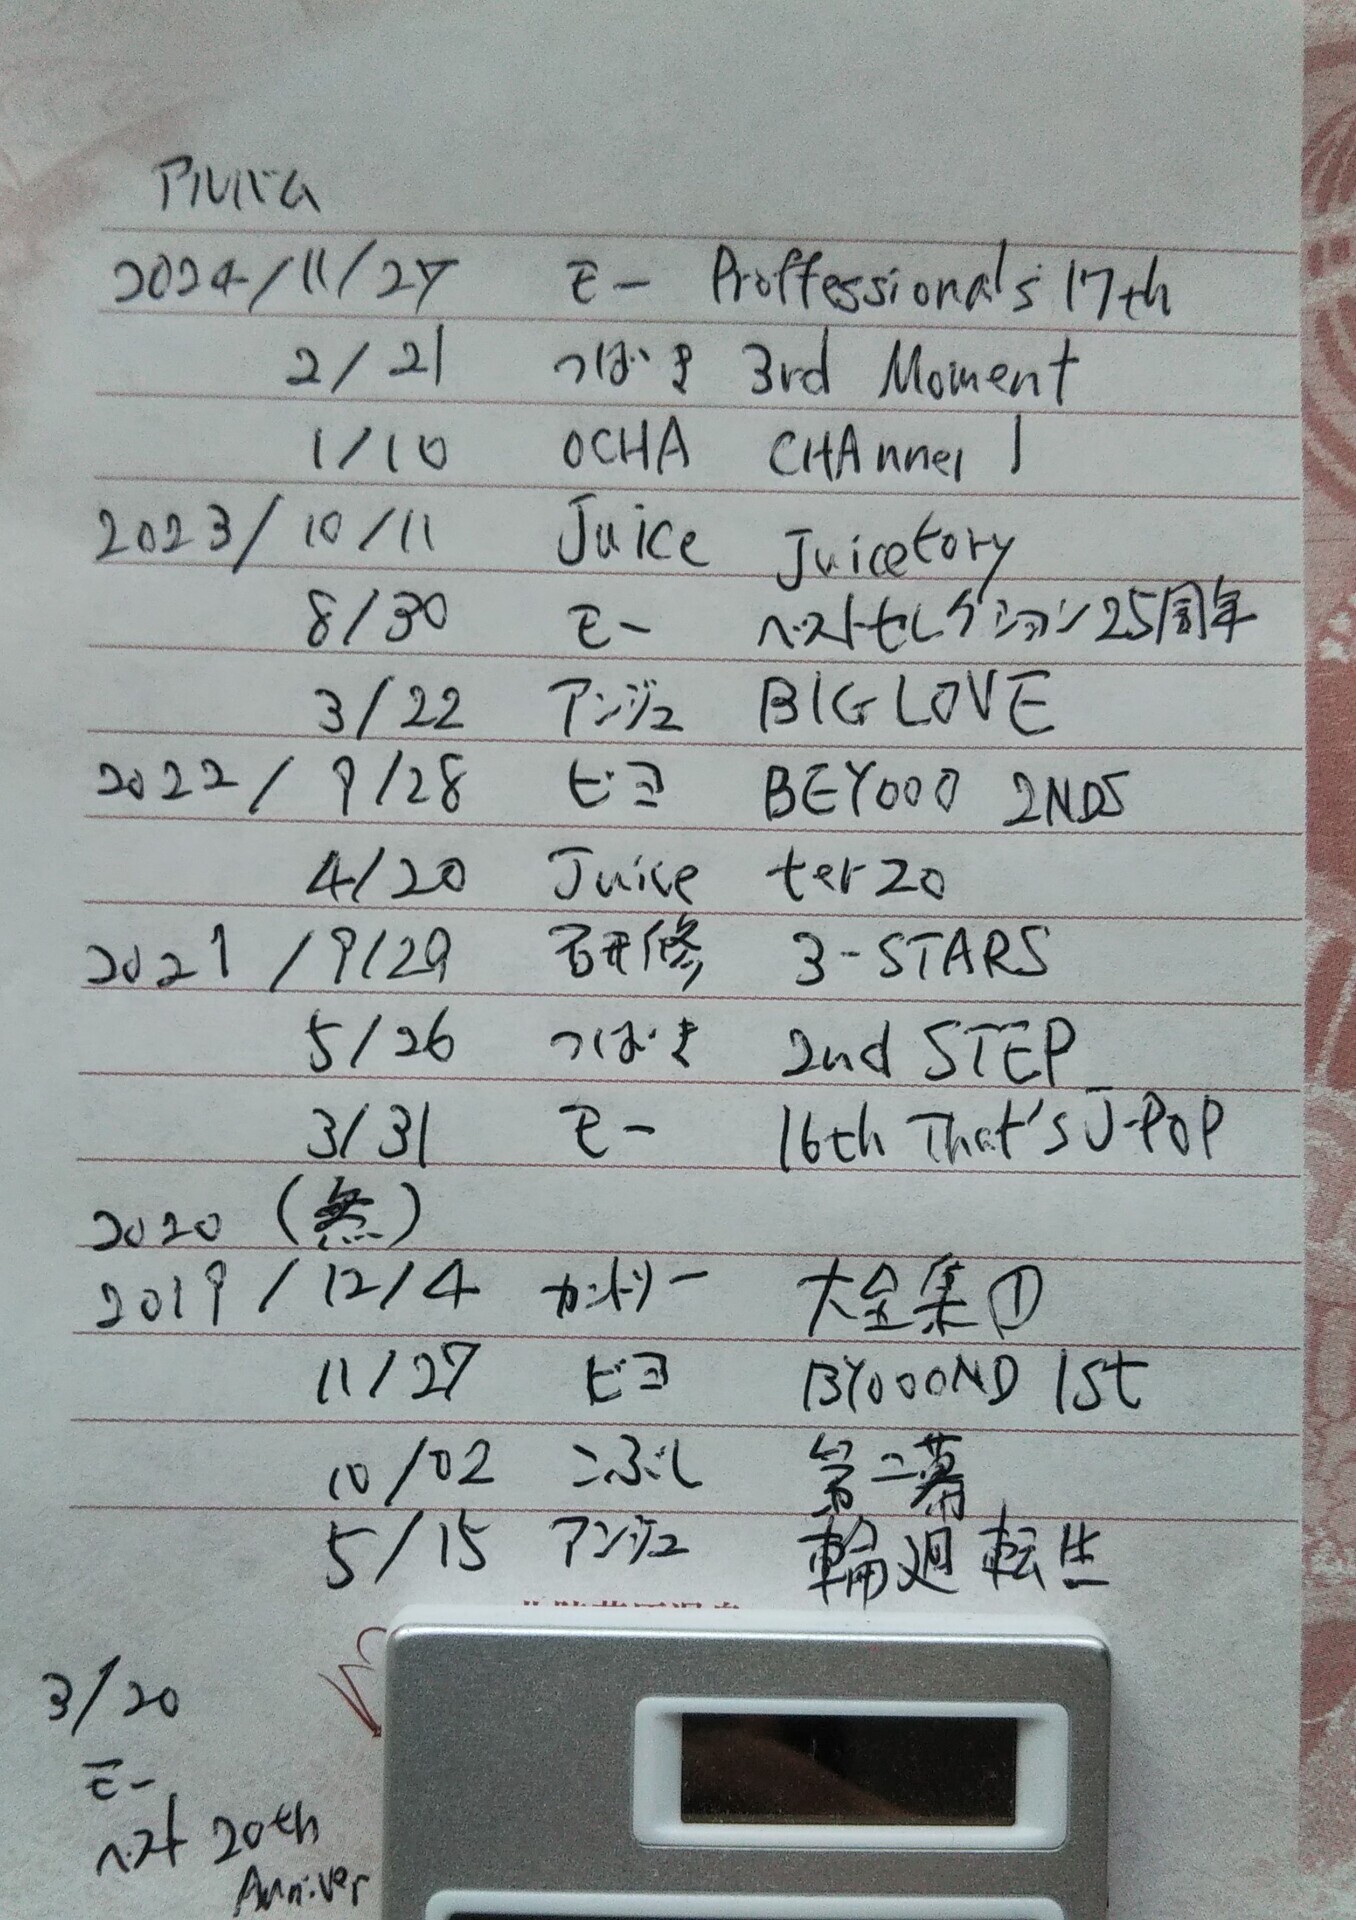 アルバム
2024/11/27 モー Proffessionals 17th
2/21 つばき 3rd Moment
1/10 OCHA CHAnnel 1
2023/10/11 Juice Juicetory
8/30 モー ベストセレクション25周年
3/22 アンジュ BIG LOVE
2022/9/28 ビヨ BEYOOO 2NDS
4/20 Juice terzo
2021/9/29 研修 3-STARS
5/26 つばき 2nd STEP
3/31 モー 16th That's J-POP
2020 (無)
2019/12/4 カントリー 大全集①
11/27 ビヨ BYOOOND 1st
10/02 こぶし 第二幕
5/15 アンジュ 輪廻転生
3/20
モー
ベスト 20th
Anniver